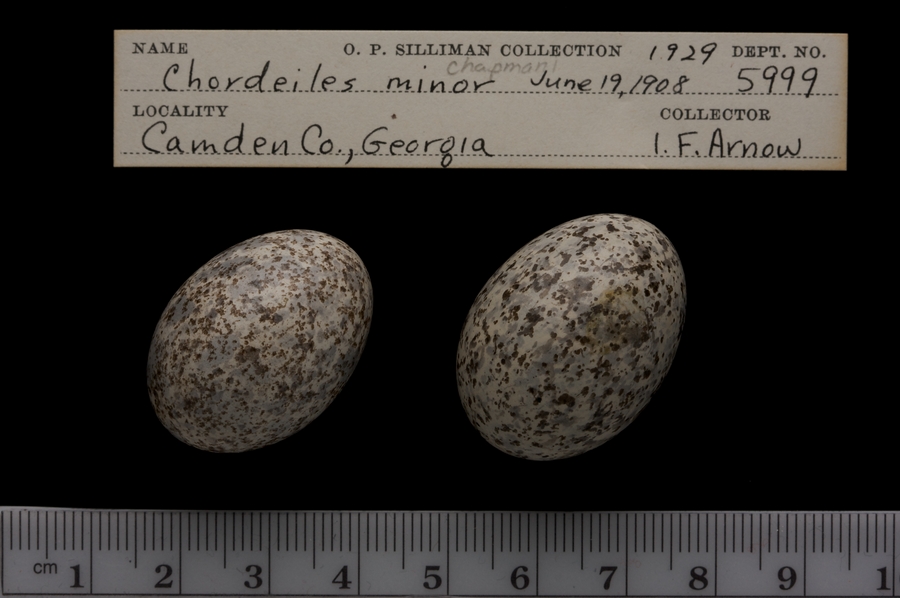 NAME O. P. SILLIMAN COLLECTION 1929 DEPT. NO.
chapmani
Chordeiles minor June 19, 1908 5999
LOCALITY COLLECTOR
Camden Co., Georgia I. F. Arnow
cm 1 2 3 4 5 6 7 8 9 1